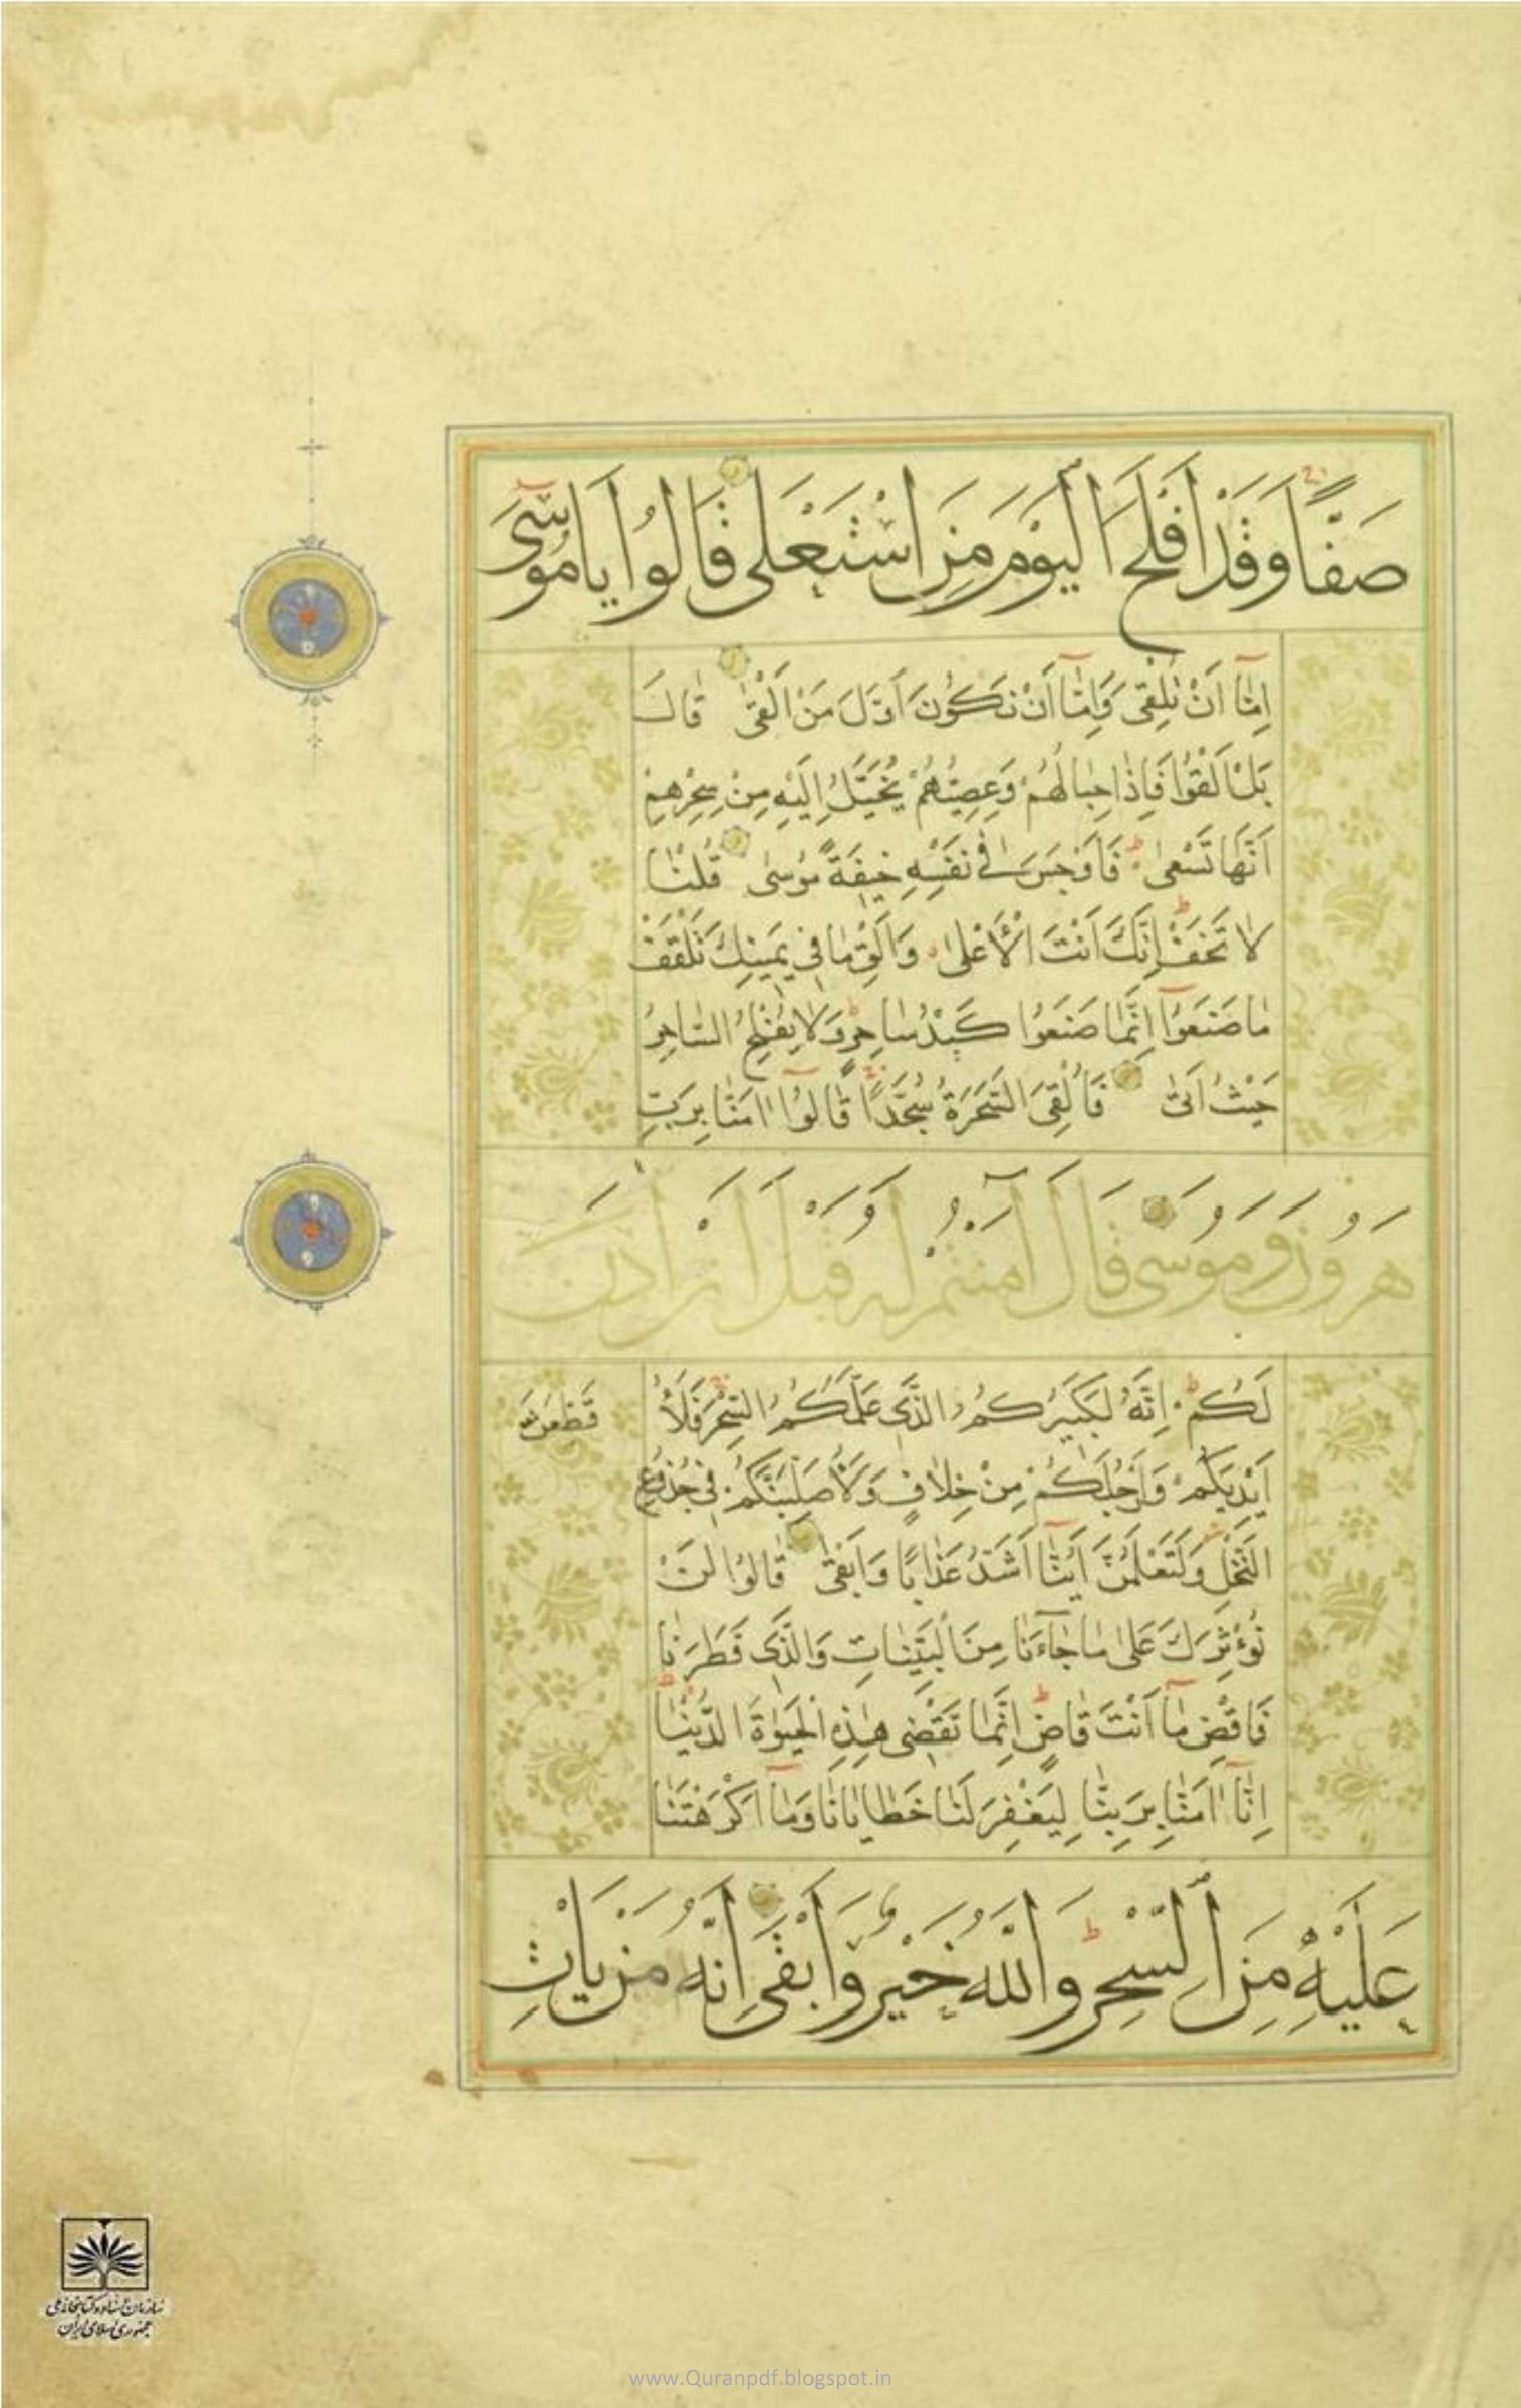 صَفًّا وَقَدْ اَفْلَحَ الْيَوْمَ مَنِ اسْتَعْلٰى قَالُوا يَامُوسٰٓى
اِمّٰٓا اَنْ تُلْقِىَ وَاِمّٰٓا اَنْ نَكُونَ اَوَّلَ مَنْ اَلْقٰى قٰالَ
بَلْ اَلْقُوا فَاِذٰا حِبٰالُهُمْ وَعِصِيُّهُمْ يُخَيَّلُ اِلَيْهِ مِنْ سِحْرِهِمْ
اَنَّهٰا تَسْعٰى فَاَوْجَسَ فٖى نَفْسِهٖ خٖيفَةً مُوسٰى قُلْنٰا
لاٰ تَخَفْ اِنَّكَ اَنْتَ الْاَعْلٰى وَاَلْقِ مٰا فٖى يَمٖينِكَ تَلْقَفْ
مٰا صَنَعُوٓا اِنَّمٰا صَنَعُوا كَيْدُ سٰاحِرٍ وَلاٰ يُفْلِحُ السّٰاحِرُ
حَيْثُ اَتٰى فَاُلْقِىَ السَّحَرَةُ سُجَّدًا قٰالُوٓا اٰمَنّٰا بِرَبِّ
هٰرُونَ وَمُوسٰى قَالَ اٰمَنْتُمْ لَهُ قَبْلَ اَنْ اٰذَنَ
لَكُمْ اِنَّهُ لَكَبٖيرُكُمُ الَّذٖى عَلَّمَكُمُ السِّحْرَ فَلَاُ
قَطِّعَنَّ
اَيْدِيَكُمْ وَاَرْجُلَكُمْ مِنْ خِلاٰفٍ وَلَاُصَلِّبَنَّكُمْ فٖى جُذُوعِ
النَّخْلِ وَلَتَعْلَمُنَّ اَيُّنٰٓا اَشَدُّ عَذٰابًا وَاَبْقٰى قٰالُوا لَنْ
نُؤْثِرَكَ عَلٰى مٰا جٰٓاءَنٰا مِنَ الْبَيِّنٰاتِ وَالَّذٖى فَطَرَنٰا
فَاقْضِ مٰٓا اَنْتَ قٰاضٍ اِنَّمٰا تَقْضٖى هٰذِهِ الْحَيٰوةَ الدُّنْيٰا
اِنّٰٓا اٰمَنّٰا بِرَبِّنٰا لِيَغْفِرَ لَنٰا خَطٰايٰانٰا وَمٰٓا اَكْرَهْتَنٰا
عَلَيْهِ مِنَ السِّحْرِ وَاللّٰهُ خَيْرٌ وَاَبْقٰى اِنَّهُ مَنْ يَاْتِ
سازمان اسناد و کتابخانه ملی
جمهوری اسلامی ایران
www.Quranpdf.blogspot.in